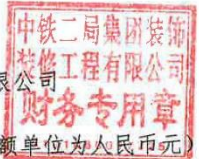 中铁二局集团装饰
装修工程有限公司
限公司
财务专用章
额单位为人民币元)